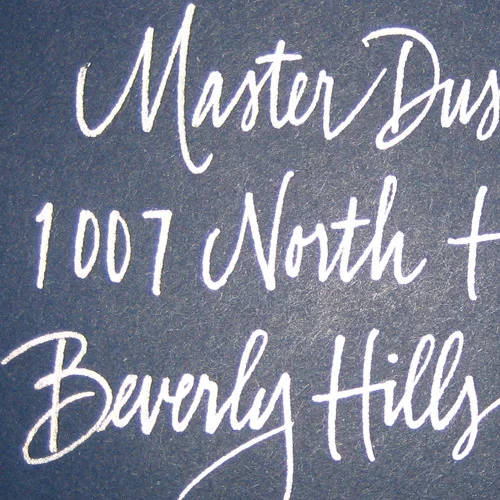 Master Dus
1007 North
Beverly Hills